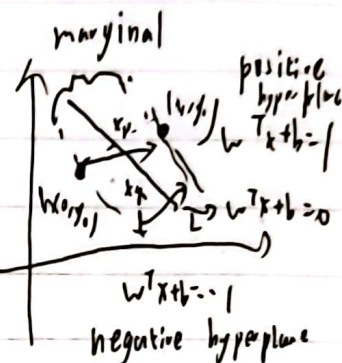 marginal
positive
hyperplane
w^T x+b=1
w^T x+b=0
w^T x+b=-1
negative hyperplane